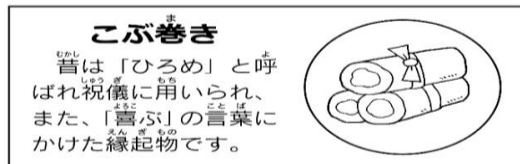 こぶ巻き
昔は「ひろめ」と呼
ばれ祝儀に用いられ、
また、「喜ぶ」の言葉に
かけた縁起物です。